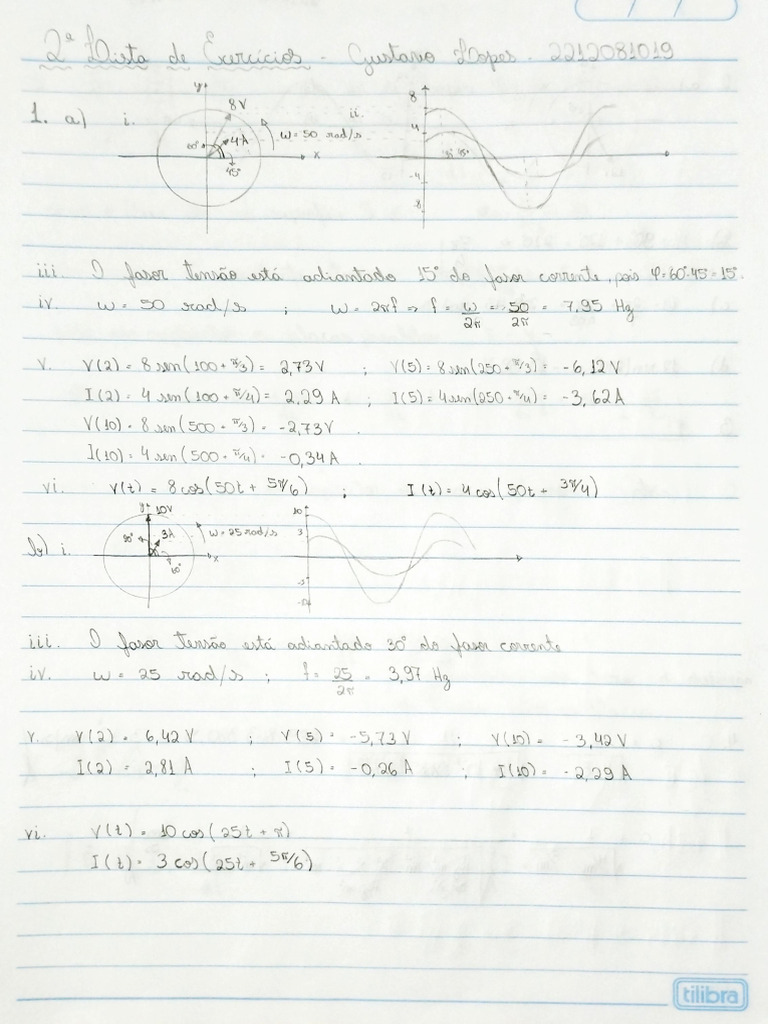 2ª Lista de Exercícios - Gustavo Lopes - 2212081019
1. a) i. y 8V 60° 4A 45° x ω = 50 rad/s ii. 8 4 -4 -8
iii. O fasor tensão está adiantado 15° do fasor corrente, pois φ=60°-45°=15°.
iv. ω = 50 rad/s ; ω = 2πf ⇒ f = ω/2π = 50/2π = 7,95 Hz
v. V(2) = 8 sen(100 + π/3) = 2,73 V ; V(5) = 8 sen(250 + π/3) = -6,12 V
I(2) = 4 sen(100 + π/4) = 2,29 A ; I(5) = 4 sen(250 + π/4) = -3,62 A
V(10) = 8 sen(500 + π/3) = -2,73 V
I(10) = 4 sen(500 + π/4) = -0,34 A
vi. V(t) = 8 cos(50t + 5π/6) ; I(t) = 4 cos(50t + 3π/4)
b) i. y 10V 3A 60° x ω = 25 rad/s 10 3
iii. O fasor tensão está adiantado 30° do fasor corrente
iv. ω = 25 rad/s ; f = 25/2π = 3,97 Hz
v. V(2) = 6,42 V ; V(5) = -5,73 V ; V(10) = -3,42 V
I(2) = 2,81 A ; I(5) = -0,26 A ; I(10) = -2,29 A
vi. V(t) = 10 cos(25t + π)
I(t) = 3 cos(25t + 5π/6)
tilibra